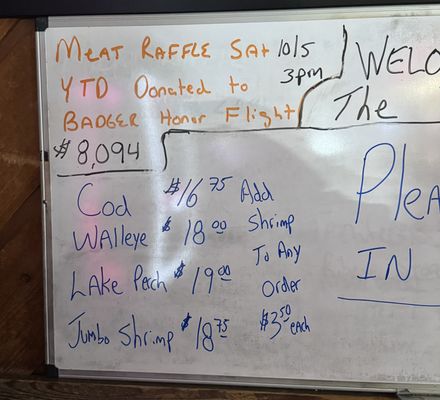 Meat Raffle Sat 10/5 3pm
YTD Donated to
Badger Honor Flight
$8,094
Cod $16.75
Walleye $18.00
Lake Perch $19.00
Jumbo Shrimp $18.75
Add
Shrimp
To Any
Order
$3.50 each
WELC
The
PleA
IN